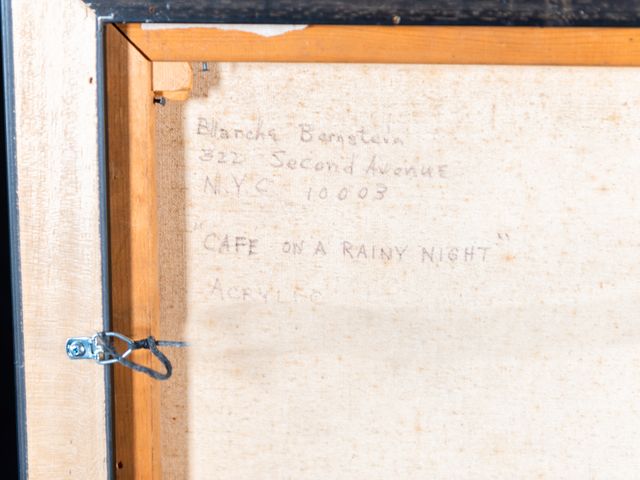 Blanche Bernstein
322 Second Avenue
N.Y.C 10003
"CAFE ON A RAINY NIGHT"
ACRYLIC